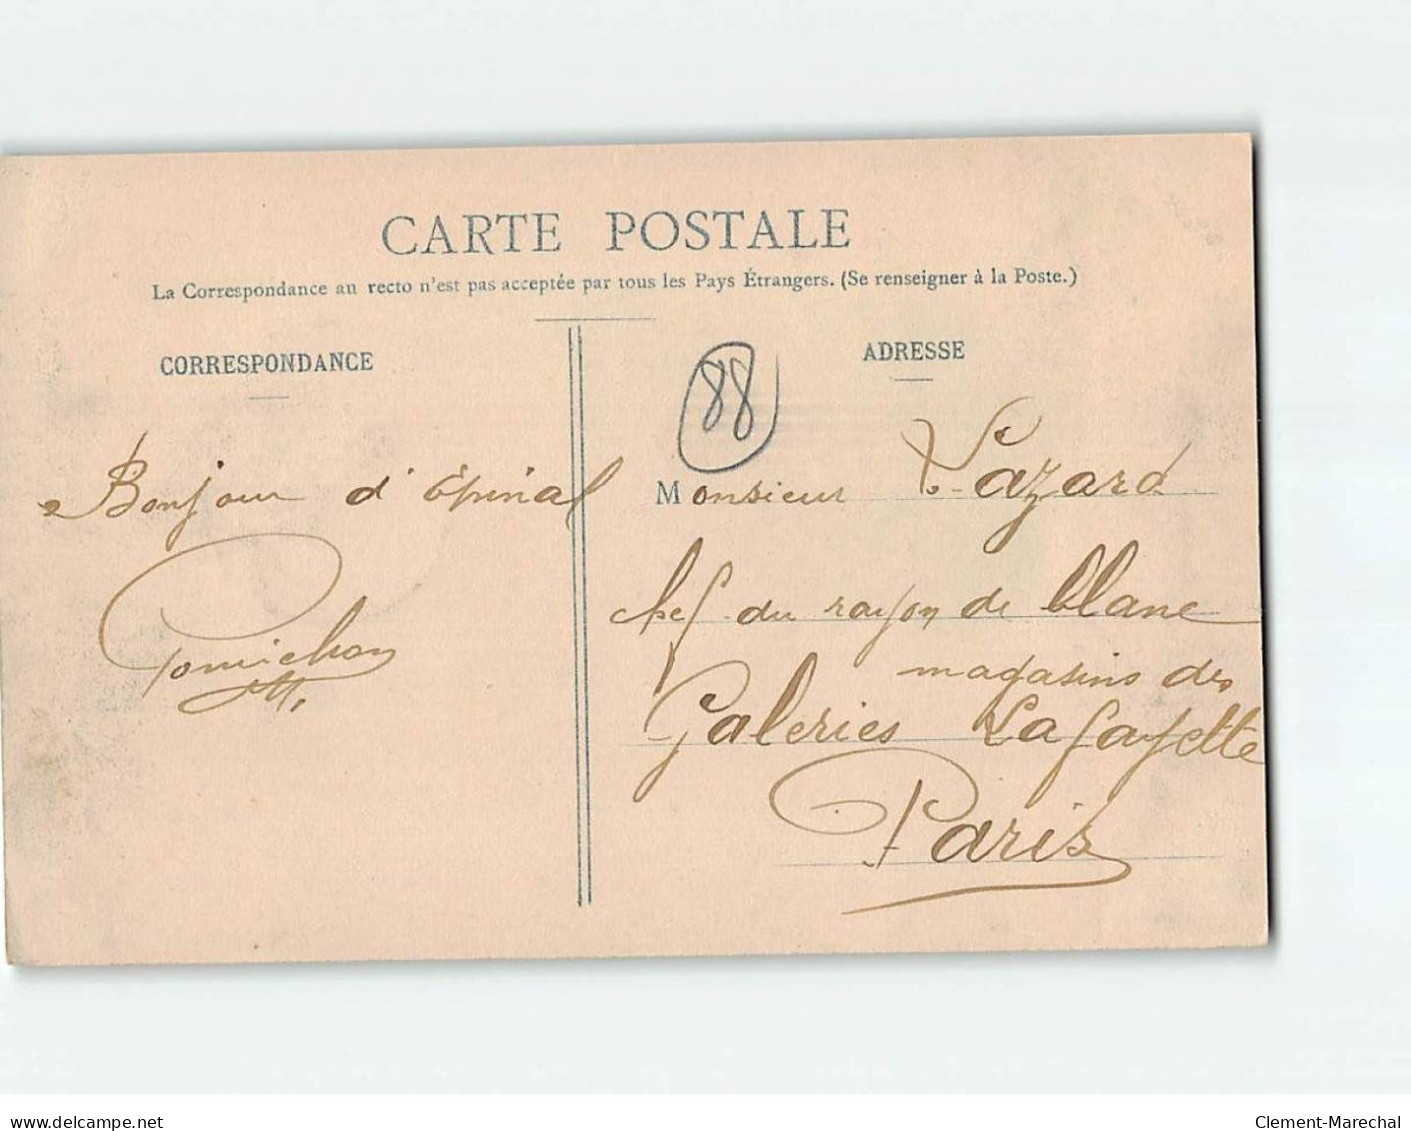 CARTE POSTALE
La Correspondance au recto n'est pas acceptée par tous les Pays Étrangers. (Se renseigner à la Poste.)
CORRESPONDANCE
Bonjour d'Epinal
ADRESSE
88
Monsieur Lazard
chef du rayon de blanc
magasins des
Galeries Lafayette
Paris
delcampe.net
Clement-Marechal